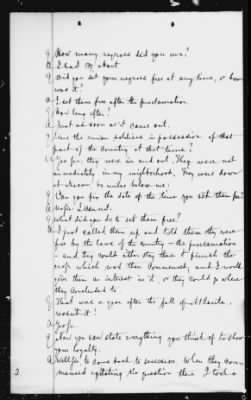 Q How many negroes did you own?
A I had 13 about
Q Did you set your negroes free at any time, or how
was it?
A I set them free after the proclamation
Q How long after?
A Just as soon as it came out.
Q Was the union soldiers in possession of that
part of the country at that time?
A Yes sir, they were in and out. They were not
immediately in my neighborhood. They were down
at Macon 30 miles below me.
Q Can you fix the date of the time you set them free?
A No sir I cannot.
Q What did you do to set them free?
A I just called them up and told them they were
free by the laws of the country — the proclamation
— and they could either stay there & finish the
crop which was then commenced, and I would
give them a interest in it, or they could go where
they concluded to.
Q That was a year after the fall of Atlanta,
wasn't it?
A Yes sir.
Q Now you can state everything you think of to show
your loyalty.
A Well sir to come back to secession. When they com-
menced agitating the question there I took a